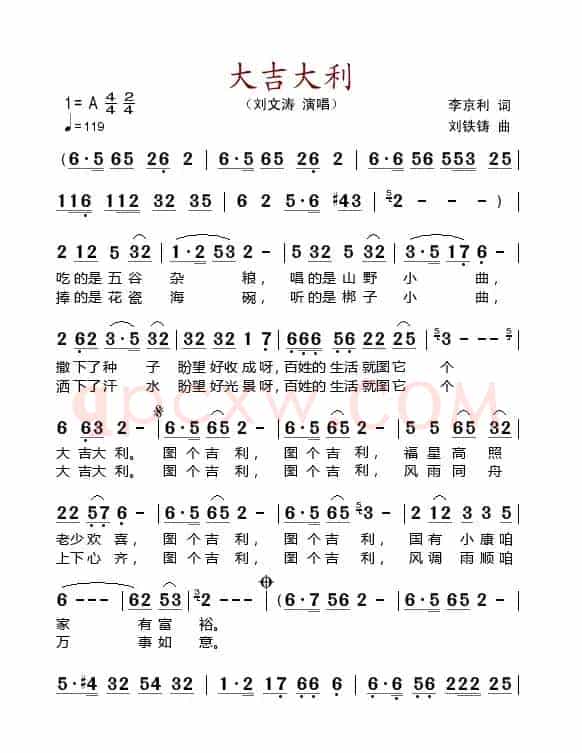 大吉大利
1= A 4/4 2/4
（刘文涛 演唱）
李京利 词
♩=119
刘铁铸 曲
( 6·5 65 26 2 | 6·5 65 26 2 | 6·6 56 553 25 |
116 112 32 35 | 6 2 5·6 #43 | 5 2 - - - )
2 12 5 32 | 1·2 53 2 - | 5·5 65 5 32 | 3·5 17 6 - |
吃的是五谷 杂 粮， 唱的是山野 小 曲，
捧的是花瓷 海 碗， 听的是梆子 小 曲，
2 62 3·5 32 | 32 32 1 7 | 666 56 22 25 | #4 3 - - - |
撒下了种 子 盼望好收成呀，百姓的生活就图它 个
洒下了汗 水 盼望好光景呀，百姓的生活就图它 个
6 63 2 - | 6·5 65 6 - | 6·5 65 6 - | 5 65 3 32 |
大吉大利。 图个吉利， 图个吉利， 福星高照
大吉大利。 图个吉利， 图个吉利， 风雨同舟
22 57 6 - | 6·5 65 6 - | 6·5 65 3 - | 2 12 3 35 |
老少欢喜， 图个吉利， 图个吉利， 国有小康咱
上下心齐， 图个吉利， 图个吉利， 风调雨顺咱
6 - - - | 62 53 2 - - | ( 6·5 7 6 - | 6·5 65 6 - |
家 有富裕。
万 事如意。
5·#4 32 54 32 | 1 2 17 66 6 | 6·6 56 22 25 |
qpcxw.COM